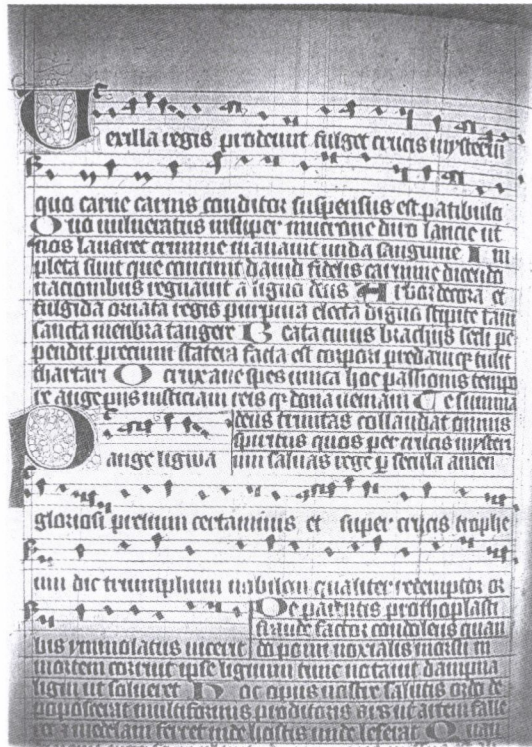 Vexilla regis prodeunt fulget crucis mysteriu
quo carne carnis conditor suspensus est patibulo
Quo vulneratus insuper mucrone diro lancie ut
nos lavaret crimine manavit unda sanguine Im
pleta sunt que concinit david fidelis carmine dicendo
nacionibus regnavit a ligno deus Arbor decora et
fulgida ornata regis purpura electa digno stipite tam
sancta menbra tangere Beata cuius brachijs secli pe
pendit precium statera facta est corporis predam qz tulit
thartari O crux ave spes unica hoc passionis tempo
re auge pijs iusticiam reis qz dona veniam Te summa
deus trinitas collaudat omnis
spiritus quos per crucis mysteri
um salvas rege p secula amen
Pange lingwa
gloriosi prelium certaminis et super crucis trophe
um dic triumphum nobilem qualiter redemptor or
bis ymmolatus vicerit
De parentis prothoplasti
fraude factor condolens quan
do pomi noxialis morsu in
mortem corruit ipse lignum tunc notavit dampna
ligni ut solveret Hoc opus nostre salutis ordo de
poposcerat multiformis proditoris ars ut artem falle
ret et medelam ferret inde hostis unde leserat Quan